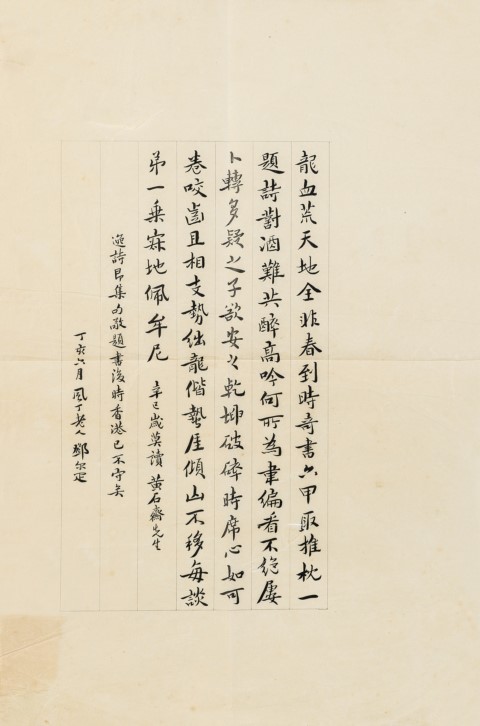 龍血荒天地全非春到時奇書六甲取推枕一
題詩對酒難共醉高吟何所為韋編看不絕屢
卜轉多疑之子欲安之乾坤破碎時席心如可
卷咬齒且相支勢絀龍偕蟄厓傾山不移每談
弟一乘寂地佩牟尼 辛巳歲莫讀黃石齋先生
逸詩即集句敬題書後時香港已不守矣
丁亥六月風丁老人鄧尔疋